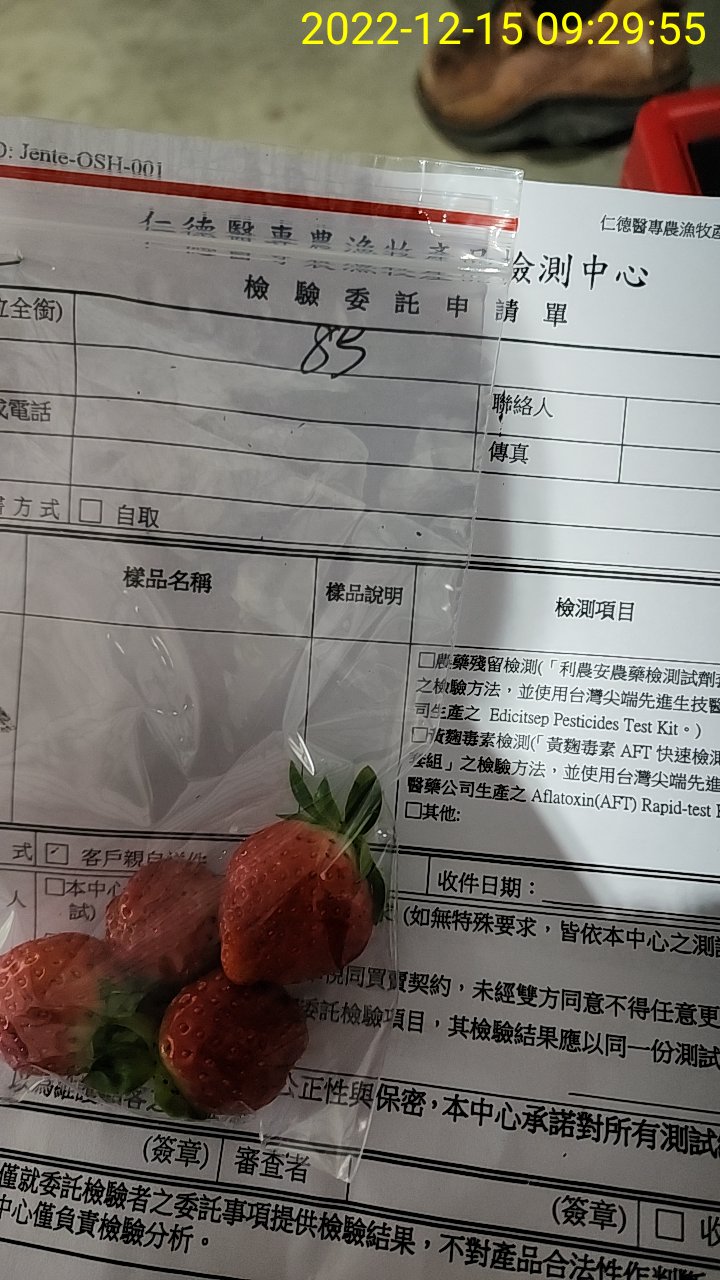 2022-12-15 09:29:55
D: Jente-OSH-001
仁德醫專農漁牧產
仁德醫專農漁牧產品檢測中心
檢驗委託申請單
立全銜)
85
或電話
聯絡人
傳真
書方式 □ 自取
樣品名稱 樣品說明 檢測項目
□農藥殘留檢測(「利農安農藥檢測試劑套
之檢驗方法，並使用台灣尖端先進生技醫
司生產之 Edicitsep Pesticides Test Kit。)
□黃麴毒素檢測(「黃麴毒素 AFT 快速檢測
套組」之檢驗方法，並使用台灣尖端先進
醫藥公司生產之 Aflatoxin(AFT) Rapid-test
□其他:
式 ☑ 客戶親自送件
收件日期：
人 □本中心
試)
(如無特殊要求，皆依本中心之測試
視同買賣契約，未經雙方同意不得任意更
委託檢驗項目，其檢驗結果應以同一份測試
公正性與保密，本中心承諾對所有測試
(簽章) 審查者
(簽章) □ 收
僅就委託檢驗者之委託事項提供檢驗結果，不對產品合法性作判斷
中心僅負責檢驗分析。